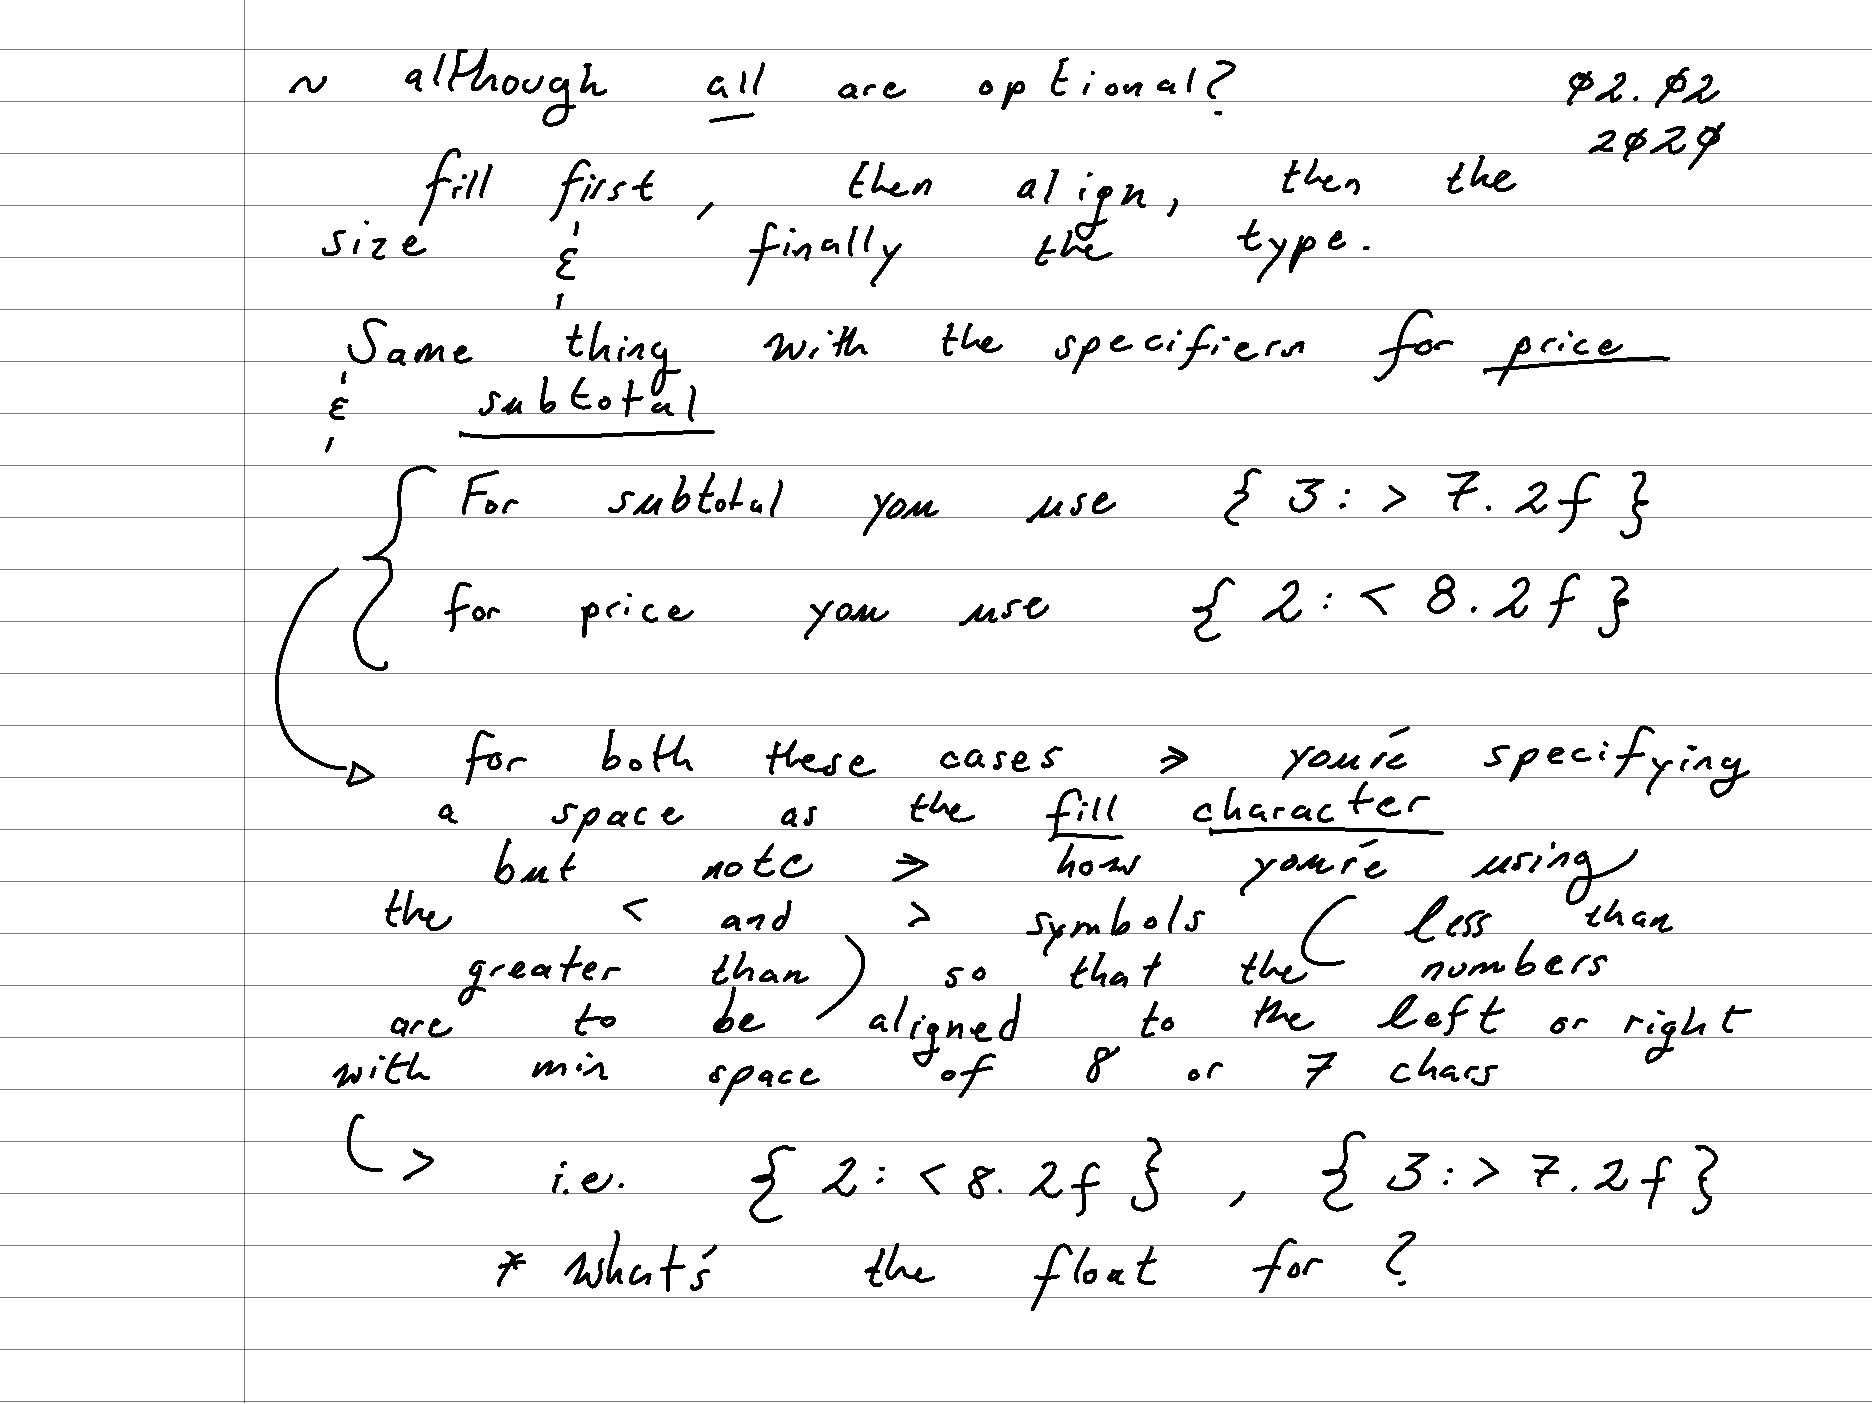 ~ although all are optional?
02.02
2020
fill first, then align, then the
size & finally the type.
Same thing with the specifiers for price
& subtotal
For subtotal you use { 3:> 7.2f }
for price you use { 2:< 8.2f }
for both these cases > you're specifying
a space as the fill character
but note > how you're using
the < and > symbols (less than
greater than) so that the numbers
are to be aligned to the left or right
with min space of 8 or 7 chars
> i.e. { 2:<8.2f } , { 3:>7.2f }
* what's the float for?